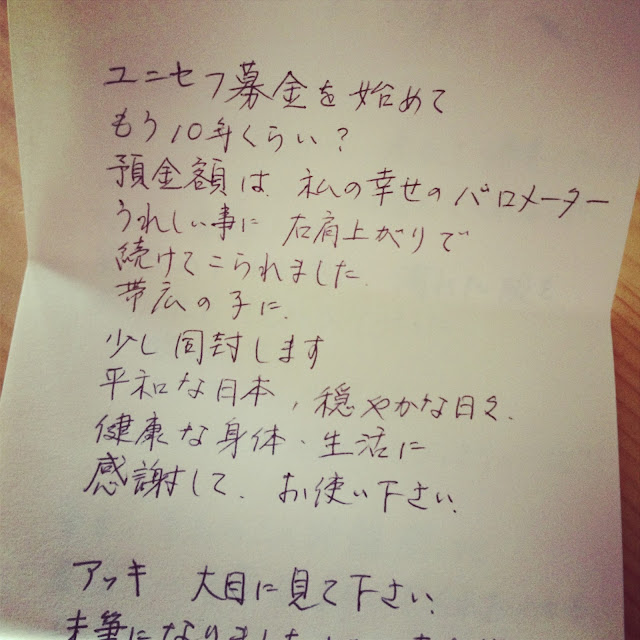 ユニセフ募金を始めて
もう10年くらい?
預金額は、私の幸せのバロメーター
うれしい事に 右肩上がりで
続けてこられました。
帯広の子に、
少し同封します
平和な日本、穏やかな日々、
健康な身体、生活に
感謝して、お使い下さい。
アッキ 大目に見て下さい。
末筆になりました